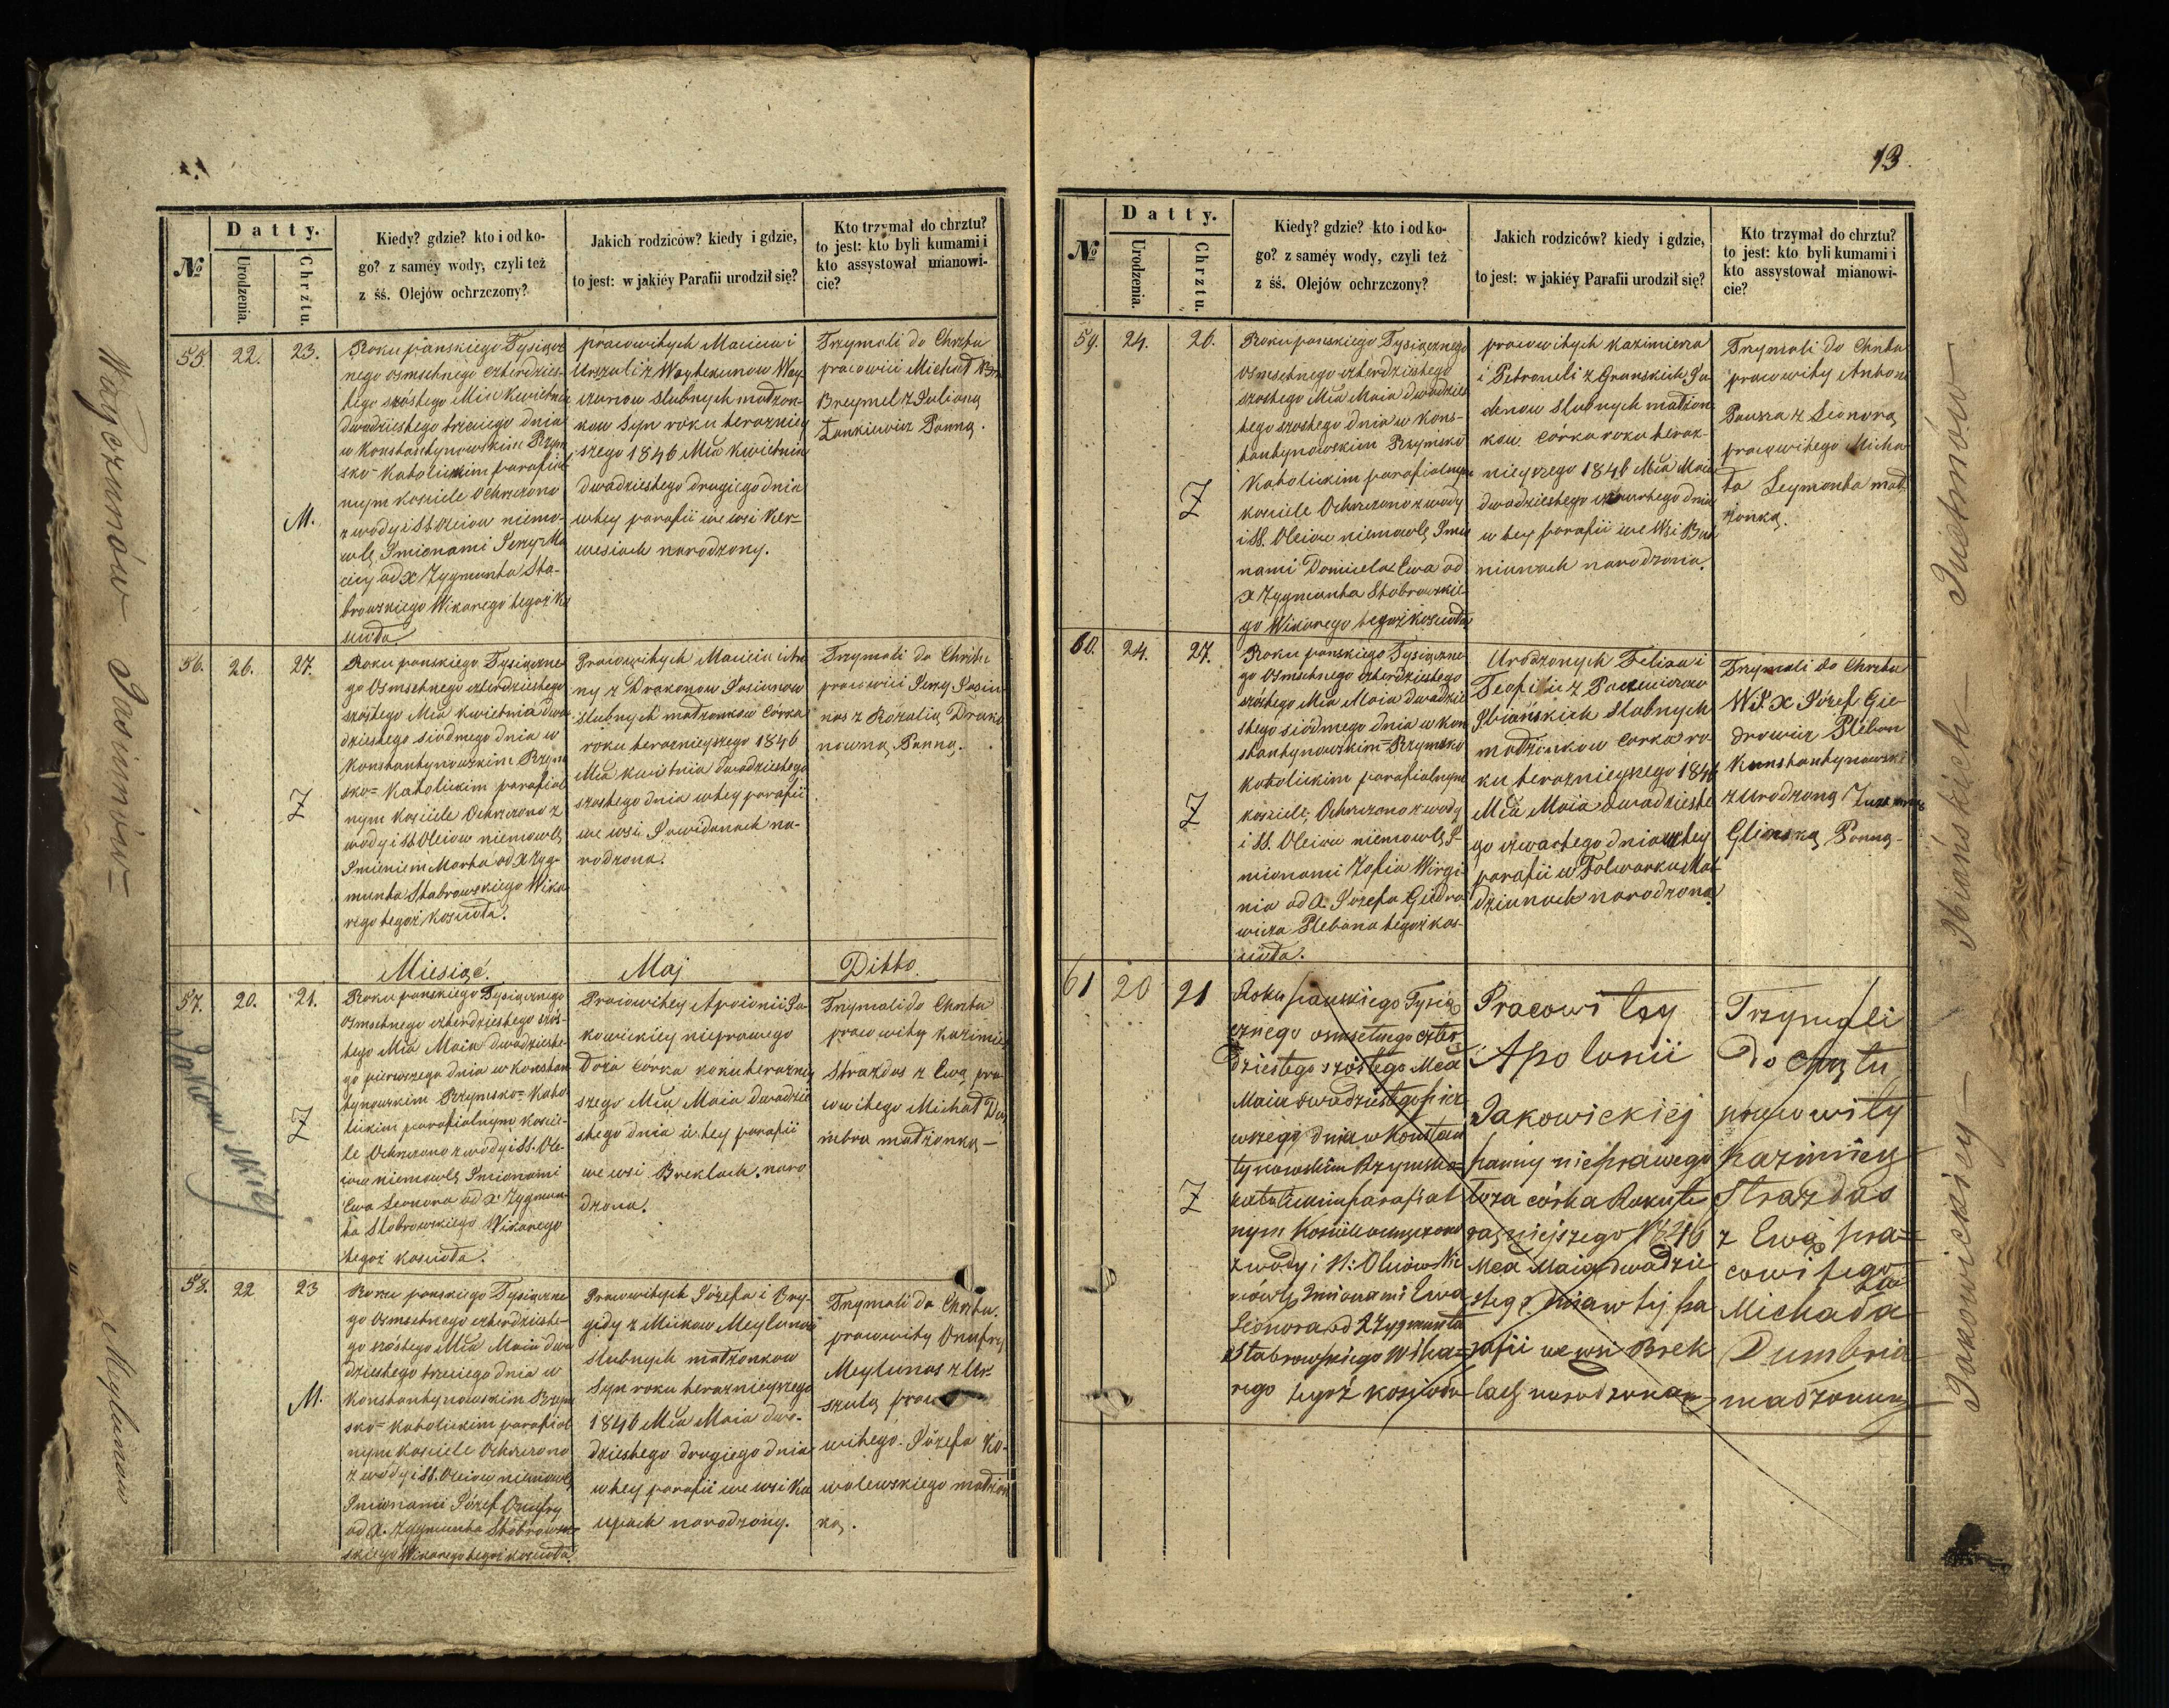 D a t t y.
№
Urodzenia.
Chrztu.
Kiedy? gdzie? kto i od ko-
go? z saméy wody, czyli też
z śś. Olejów ochrzczony?
Jakich rodziców? kiedy i gdzie,
to jest: w jakiéy Parafii urodził się?
Kto trzymał do chrztu?
to jest: kto byli kumami i
kto assystował mianowi-
cie?
55. 22. 23.
M.
Roku pańskiego Tysiącz
nego osmsetnego czterdzies-
tego szóstego Mca Kwietnia
dwudziestego trzeciego dnia
w Konstantynowskim Rzym
sko-Katolickim parafial
nym kosciele Ochrzczono
z wody i SS Oleiow niemo-
wlę Imionami Jerzy Ma
ciey od X Zygmunta Sta-
browskiego Wikarego tegoż Ko
scioła
pracowitych Macieia i
Urszuli z Woytekunow Way-
czunow slubnych małżon-
kow Syn roku terazniey
szego 1846 Mca Kwietnia
dwudziestego drugiego dnia
w tey parafii we wsi Ker-
wesiach narodzony.
Trzymali do Chrztu
pracowici Michał
Breymel z Julianą
Jankiewicz Panną.
56. 26. 27.
Z
Roku pańskiego Tysiączne
go Osmsetnego czterdziestego
szóstego Mca Kwietnia dwu
dziestego siodmego dnia w
Konstantynowskim Rzym
sko=Katolickim parafial
nym kosciele Ochrzczono z
wody i SS Oleiow niemowlę
Imieniem Marta od X Zyg-
munta Stabrowskiego Wika
rego tegoż kościoła.
Pracowitych Macieia i An
ny z Drakonow Josiunow
slubnych małżonkow Córka
roku teraznieyszego 1846
Mca kwietnia dwudziestego
szostego dnia w tey parafii
we wsi Jowidanach na-
rodzona.
Trzymali do Chrztu
pracowici Jerzy Josiu-
nas z Rozalią Drako
nowną Panną.
Miesiąc. Maj Ditto.
57. 20. 21.
Z
Roku pańskiego Tysiącznego
osmsetnego czterdziestego szós-
tego Mca Maia dwudzieste-
go pierwszego dnia w Konstan
tynowskim Rzymsko=Kato
lickim parafialnym koscie-
le Ochrzczono z wody i SS. Ole-
iow niemowlę Imionami
Ewa Leonora od X Zygmun-
ta Stabrowskiego Wikarego
tegoż kościoła.
Pracowitey Apolonii Ja-
kowickiey nieprawego
Łoża Córka roku teraźniey
szego Mca Maia dwudzie
stego dnia w tey parafii
we wsi Breklach naro
dzona.
Trzymali do Chrztu
pracowity Kazimierz
Strazdas z Ewą pra-
cowitego Michał Du
mbra małżonką—
58. 22 23
M.
Roku pańskiego Tysiączne
go Osmsetnego czterdzieste-
go szóstego Mca Maia dwu
dziestego trzeciego dnia w
Konstantynowskim Rzym
sko=Katolickim parafial
nym kosciele Ochrzczono
z wody i SS. Oleiow niemowlę
Imionami Józef Onufry
od X. Zygmunta Stabrow-
skiego Wikarego tegoż kościoła
Pracowitych Józefa i Bry-
gidy z Mickow Meylunow
slubnych małżonkow
Syn roku teraznieyszego
1846 Mca Maia dwu-
dziestego drugiego dnia
w tey parafii we wsi Ku
cyach narodzony.
Trzymali do Chrztu
pracowity Onufry
Meylunas z Ur-
szulą praco
witego Józefa Ko-
walewskiego małżon
ką.
Wayczunów
Meylunow
13.
D a t t y.
№
Urodzenia.
Chrztu.
Kiedy? gdzie? kto i od ko-
go? z saméy wody, czyli też
z śś. Olejów ochrzczony?
Jakich rodziców? kiedy i gdzie,
to jest: w jakiéy Parafii urodził się?
Kto trzymał do chrztu?
to jest: kto byli kumami i
kto assystował mianowi-
cie?
59. 24. 26.
Z
Roku pańskiego Tysiącznego
osmsetnego czterdziestego
szostego Mca Maia dwudzies
tego szostego dnia w Kons-
tantynowskim Rzymsko
Katolickim parafialnym
kosciele Ochrzczono z wody
i SS. Oleiow niemowlę Imio
nami Domicela Ewa od
X Zygmunta Stabrowskie-
go Wikarego tegoż kościoła
pracowitych Kazimierza
i Petroneli z Gronskich Ju
chnow Slubnych małżon
kow Córka roku teraz-
nieyszego 1846 Mca Maia
dwudziestego czwartego dnia
w tey parafii we Wsi
niunach narodzona.
Trzymali do Chrztu
pracowity Antoni
Pauza z Leonorą
pracowitego Micha
ła Leymonta mał
żonką.
60. 24. 27.
Z
Roku pańskiego Tysiączne
go Osmsetnego czterdziestego
szóstego Mca Maia dwudzie
stego siódmego dnia w kon
stantynowskim=Rzymsko
katolickim parafialnym
kosciele, Ochrzczono z wody
i SS. Oleiow niemowlę I-
mionami Zofia Wirgi-
nia od X. Józefa Giedro
wicza Plebana tegoż koś-
cioła.
Urodzonych Felixa i
Teofilii z Paszewiczow
Ibiańskich slubnych
małżonkow Corka ro-
ku teraznieyszego 1846
Mca Maia dwudzieste
go czwartego dnia w tey
parafii w Folwarku
dziunach narodzona
Trzymali do Chrztu
W J. X Józef Gie-
drowicz Pleban
Konstantynowski
z Urodzoną
Glinską Panną-
61 20 21
Z
Roku pańskiego Tysią
cznego osmsetnego czter
dziestego szóstego Mca
Maia dwudziestego pier
wszego dnia w Konstan
tynowskim Rzymsko=
katolickim parafial
nym Kosciele ochrzczono
z wody i SS: Oleiow Nie
mowlę Imionami Ewa
Leonora od X Zygmunta
Stabrowskiego Wika=
rego tegoż kościoła
Pracowitey
Apolonii
Jakowickiéj
panny nieprawego
łoza córka Roku te
razniejszego 1846
Mca Maia dwudzie
stego dnia w tej pa
rafii we wsi Brek
lach narodzona
Trzymali
do chrztu
pracowity
Kazimierz
Strazdas
z Ewą pra=
cowitego
Michała
Dumbria
madzonką
Juchnów—
Ibiańskich—
Jakowickiey—